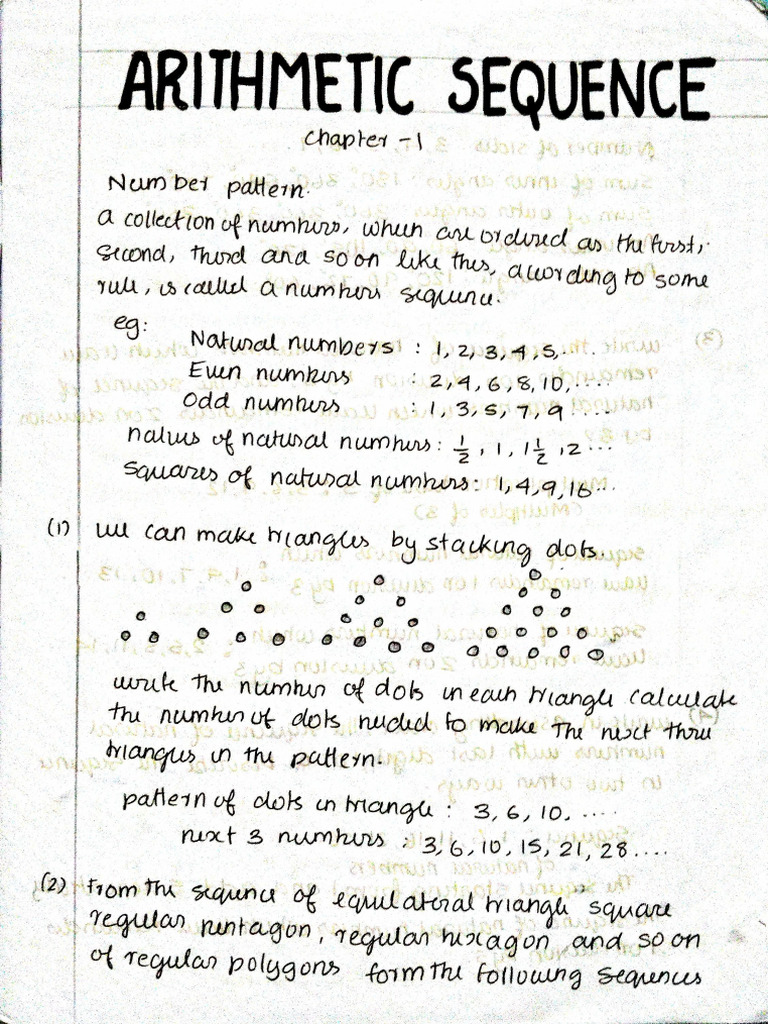 ARITHMETIC SEQUENCE
Chapter - 1
Number pattern:
A collection of numbers, which are ordered as the first,
second, third and so on like this, according to some
rule, is called a numbers sequence.
eg:
Natural numbers : 1, 2, 3, 4, 5, ....
Even numbers : 2, 4, 6, 8, 10, ....
Odd numbers : 1, 3, 5, 7, 9 ....
halves of natural numbers: 1/2, 1, 1 1/2, 2 ...
Squares of natural numbers: 1, 4, 9, 16...
(1) we can make triangles by stacking dots.
write the number of dots in each triangle calculate
the number of dots needed to make the next three
triangles in the pattern.
pattern of dots in triangle : 3, 6, 10, ....
next 3 numbers : 3, 6, 10, 15, 21, 28 ....
(2) From the sequence of equilateral triangle square
regular pentagon, regular hexagon and so on
of regular polygons form the following sequences